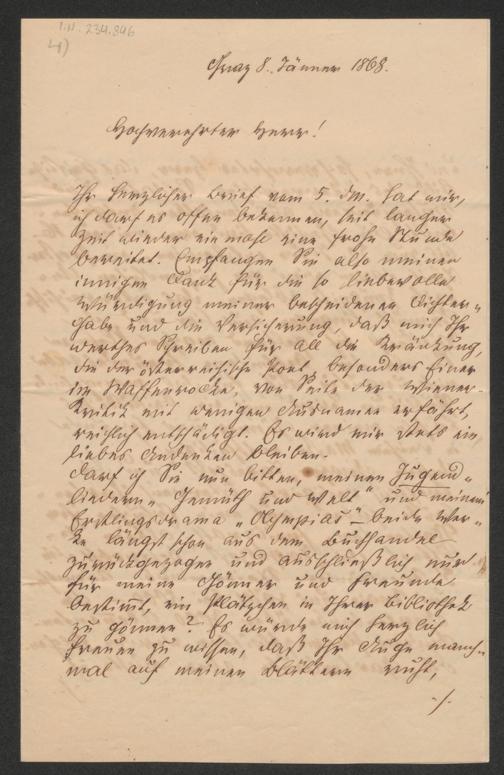 I.N. 234.846
4)
Graz 8. Jänner 1868.
Hochverehrter Herr!
Ihr herzlicher Brief vom 5. dM. hat mir,
ich darf es offen bekennen, seit langer
Zeit wieder einmahl eine frohe Stunde
bereitet. Empfangen Sie also meinen
innigen Dank für die so liebevolle
Würdigung meiner bescheidenen Dichter-
gabe und die Versicherung, daß mich Ihr
werthes Schreiben für all die Kränkung,
die der österreichische Poet, besonders Einer
im Waffenrocke, von Seite der Wiener-
Kritik mit wenigen Ausnamen erfährt,
reichlich entschädigt. Es wird mir stets ein
liebes Andenken bleiben.
Darf ich Sie nun bitten, meinen Jugend-
liedern „Gemüth und Welt" und meinem
Erstlingsdrama „Olympias" – beide Wer-
ke längst schon aus dem Buchhandel
zurückgezogen und ausschließlich nur
für meine Gönner und Freunde
bestimmt, ein Plätzchen in Ihrer Bibliothek
zu gönnen? Es würde mich herzlich
freuen zu wissen, daß Ihr Auge manch-
mal auf meinen Blättern ruht,
./.